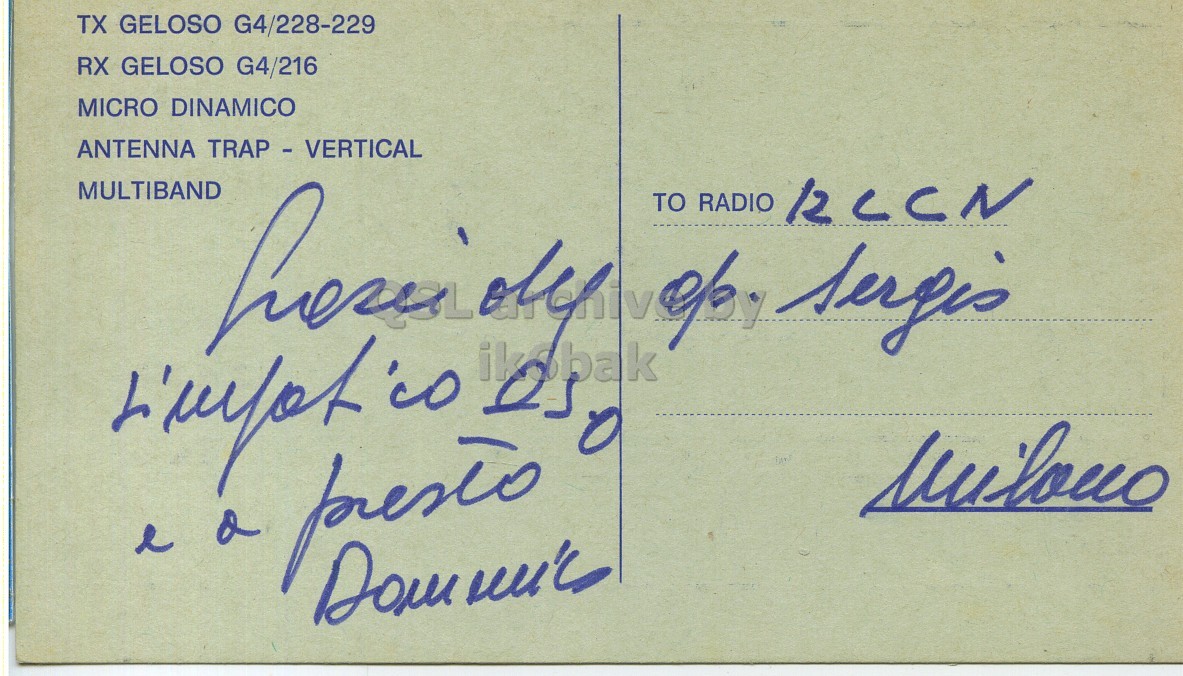 TX GELOSO G4/228-229
RX GELOSO G4/216
MICRO DINAMICO
ANTENNA TRAP - VERTICAL
MULTIBAND
Grazie del
simpatico QSO
e a presto
Domenico
TO RADIO I2CCN
op. Sergio
Milano
QSL archive by
ik6bak